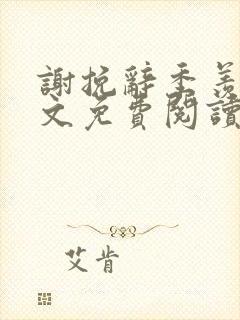 謝挽辭季羨
文免費閱讀
艾肯